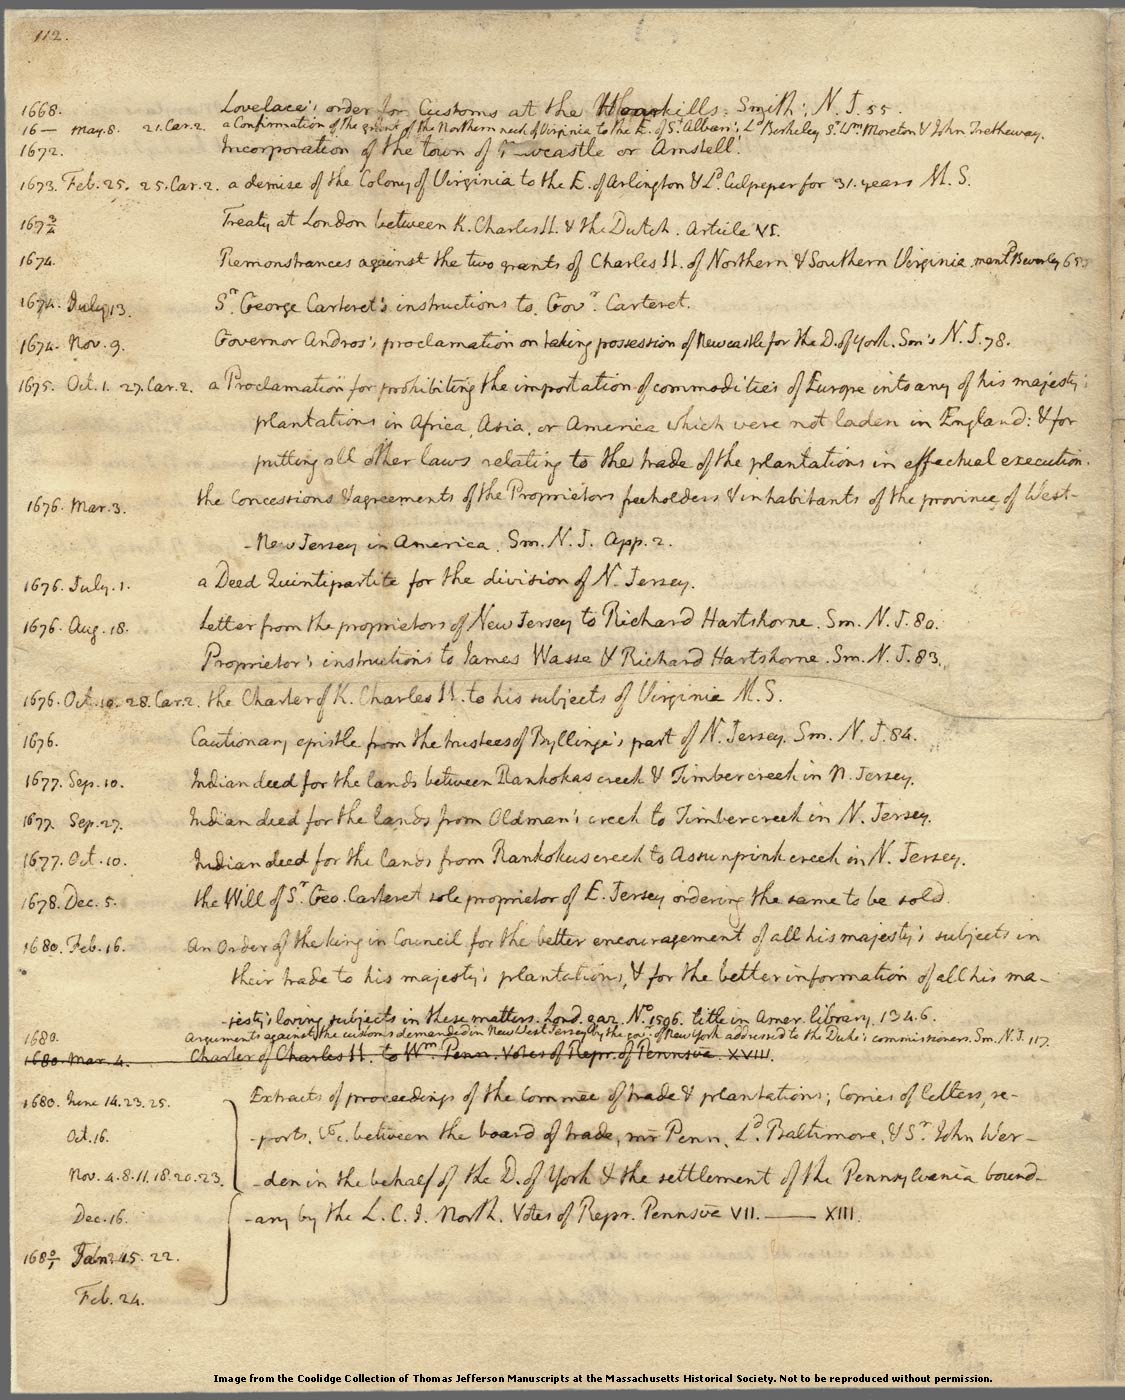 112.
1668. Lovelace's order for Customs at the Hoarkills. Smith's N. J. 55.
16— May. 8. 21. Car. 2. a Confirmation of the grant of the Northern neck of Virginia to the E. of St. Alban's, Ld. Berkeley, Sr. Wm. Moreton & John Tretheway.
1672. Incorporation of the town of Newcastle or Amstell.
1673. Feb. 25. 25. Car. 2. a demise of the Colony of Virginia to the E. of Arlington & Ld. Culpeper for 31. years M. S.
167 3/4 Treaty at London between K. Charles II. & the Dutch. Article VI.
1674. Remonstrances against the two grants of Charles II. of Northern & Southern Virginia. mentd. Beverley 65.
1674. July 13. Sr. George Carteret's instructions to Govr. Carteret.
1674. Nov. 9. Governor Andros's proclamation on taking possession of Newcastle for the D. of York. Sm's N. J. 78.
1675. Oct. 1. 27. Car. 2. a Proclamation for prohibiting the importation of commodities of Europe into any of his majesty's
plantations in Africa, Asia, or America which were not laden in England: & for
putting all other laws relating to the trade of the plantations in effectual execution.
1676. Mar. 3. the Concessions & agreements of the Proprietors freeholders & inhabitants of the province of West-
-New Jersey in America. Sm. N. J. App. 2.
1676. July. 1. a Deed Quintipartite for the division of N. Jersey.
1676. Aug. 18. Letter from the proprietors of New Jersey to Richard Hartshorne. Sm. N. J. 80.
Proprietor's instructions to James Wasse & Richard Hartshorne. Sm. N. J. 83.
1676. Oct. 10. 28. Car. 2. the Charter of K. Charles II. to his subjects of Virginia M. S.
1676. Cautionary epistle from the trustees of Byllinge's part of N. Jersey. Sm. N. J. 84.
1677. Sep. 10. Indian deed for the lands between Rankokas creek & Timber creek in N. Jersey.
1677. Sep. 27. Indian deed for the lands from Oldman's creek to Timber creek in N. Jersey.
1677. Oct. 10. Indian deed for the lands from Rankokus creek to Assunpink creek in N. Jersey.
1678. Dec. 5. the Will of Sr. Geo. Carteret sole proprietor of E. Jersey ordering the same to be sold.
1680. Feb. 16. An Order of the king in Council for the better encouragement of all his majesty's subjects in
their trade to his majesty's plantations, & for the better information of all his ma-
-jesty's loving subjects in these matters. Lond. gaz. No. 1596. title in Amer. library. 134.6.
1680. Arguments against the customs demanded in New West Jersey by the govr. of New york addressed to the Duke's commissioners. Sm. N. J. 117.
1680. Mar. 4. Charter of Charles II. to Wm. Penn. Votes of Repr. of Pennsva. XVIII.
1680. June 14. 23. 25. Extracts of proceedings of the commee of trade & plantations; Copies of letters, re-
Oct. 16. -ports, &c. between the board of trade, mr Penn, Ld. Baltimore, & Sr. John Wer-
Nov. 4. 8. 11. 18. 20. 23. -den in the behalf of the D. of York & the settlement of the Pennsylvania bound-
Dec. 16. -ary by the L. C. J. North. Votes of Repr. Pennsva VII. — XIII.
168 0/1 Jan. 15. 22.
Feb. 24.
Image from the Coolidge Collection of Thomas Jefferson Manuscripts at the Massachusetts Historical Society. Not to be reproduced without permission.